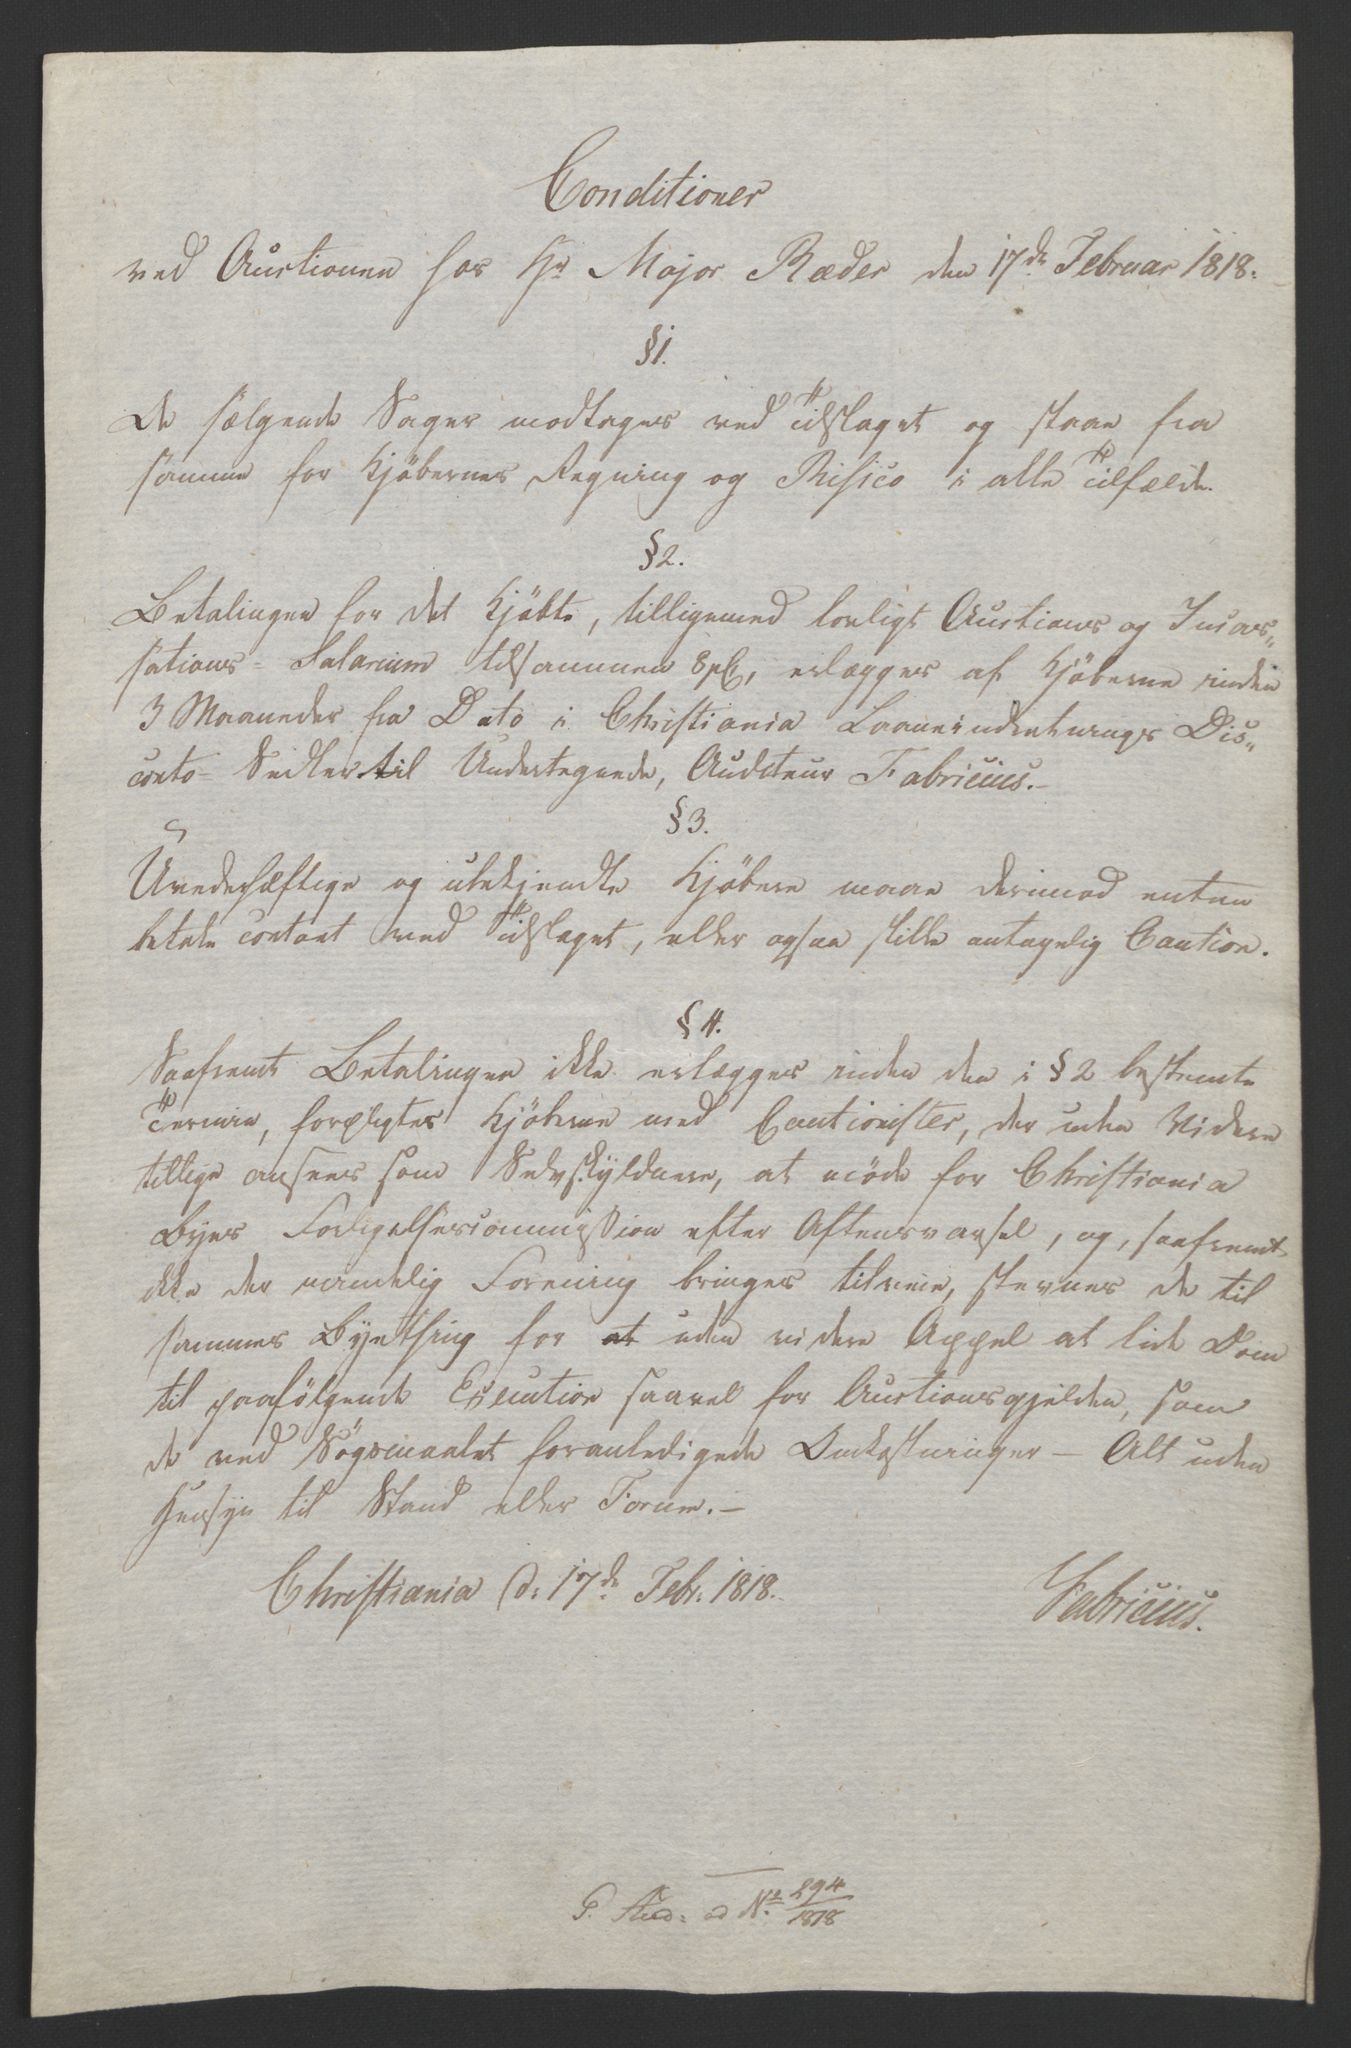 Conditioner
ved Auctionen hos Hr Major Ræder den 17de Februar 1818.
§1.
De sælgende Sager modtages ved Tilslaget og staae fra
samme for Kjöbernes Regning og Risico i alle Tilfælde.
§2.
Betalingen for det Kjöbte, tilligemed lovligt Auctions og Incas„
sations- Salarium tilsammen 8 pC, erlægges af Kjöberne inden
3 Maaneder fra Dato i Christiania Laaneindretnings Dis„
conto- Sedler til Undertegnede, Auditeur Fabricius.-
§3.
Uvederhæftige og ubekjendte Kjöbere maae derimod enten
betale contant ved Tilslaget, eller ogsaa stille antagelig Caution.
§4.
Saafremt Betalingen ikke erlægges inden den i §2 bestemte
Termin, forpligtes Kjöberne med Cautionister, der uden Videre
tillige ansees som Selvskyldnere, at möde for Christiania
Byes Forligelsescommission efter Aftensvarsel, og, saafremt
ikke der mindelig Forening bringes tilveie, stevnes de til
sammes Byetthing for at uden videre Appel at lide Dom
til paafölgende Execution saavel for Auctionsgjelden, som
de ved Sögsmaalet foranledigede Omkostninger - Alt uden
Hensyn til Stand eller Forum.-
Christiania d. 17de Febr. 1818.
Fabricius.
P. ad No 894
1818